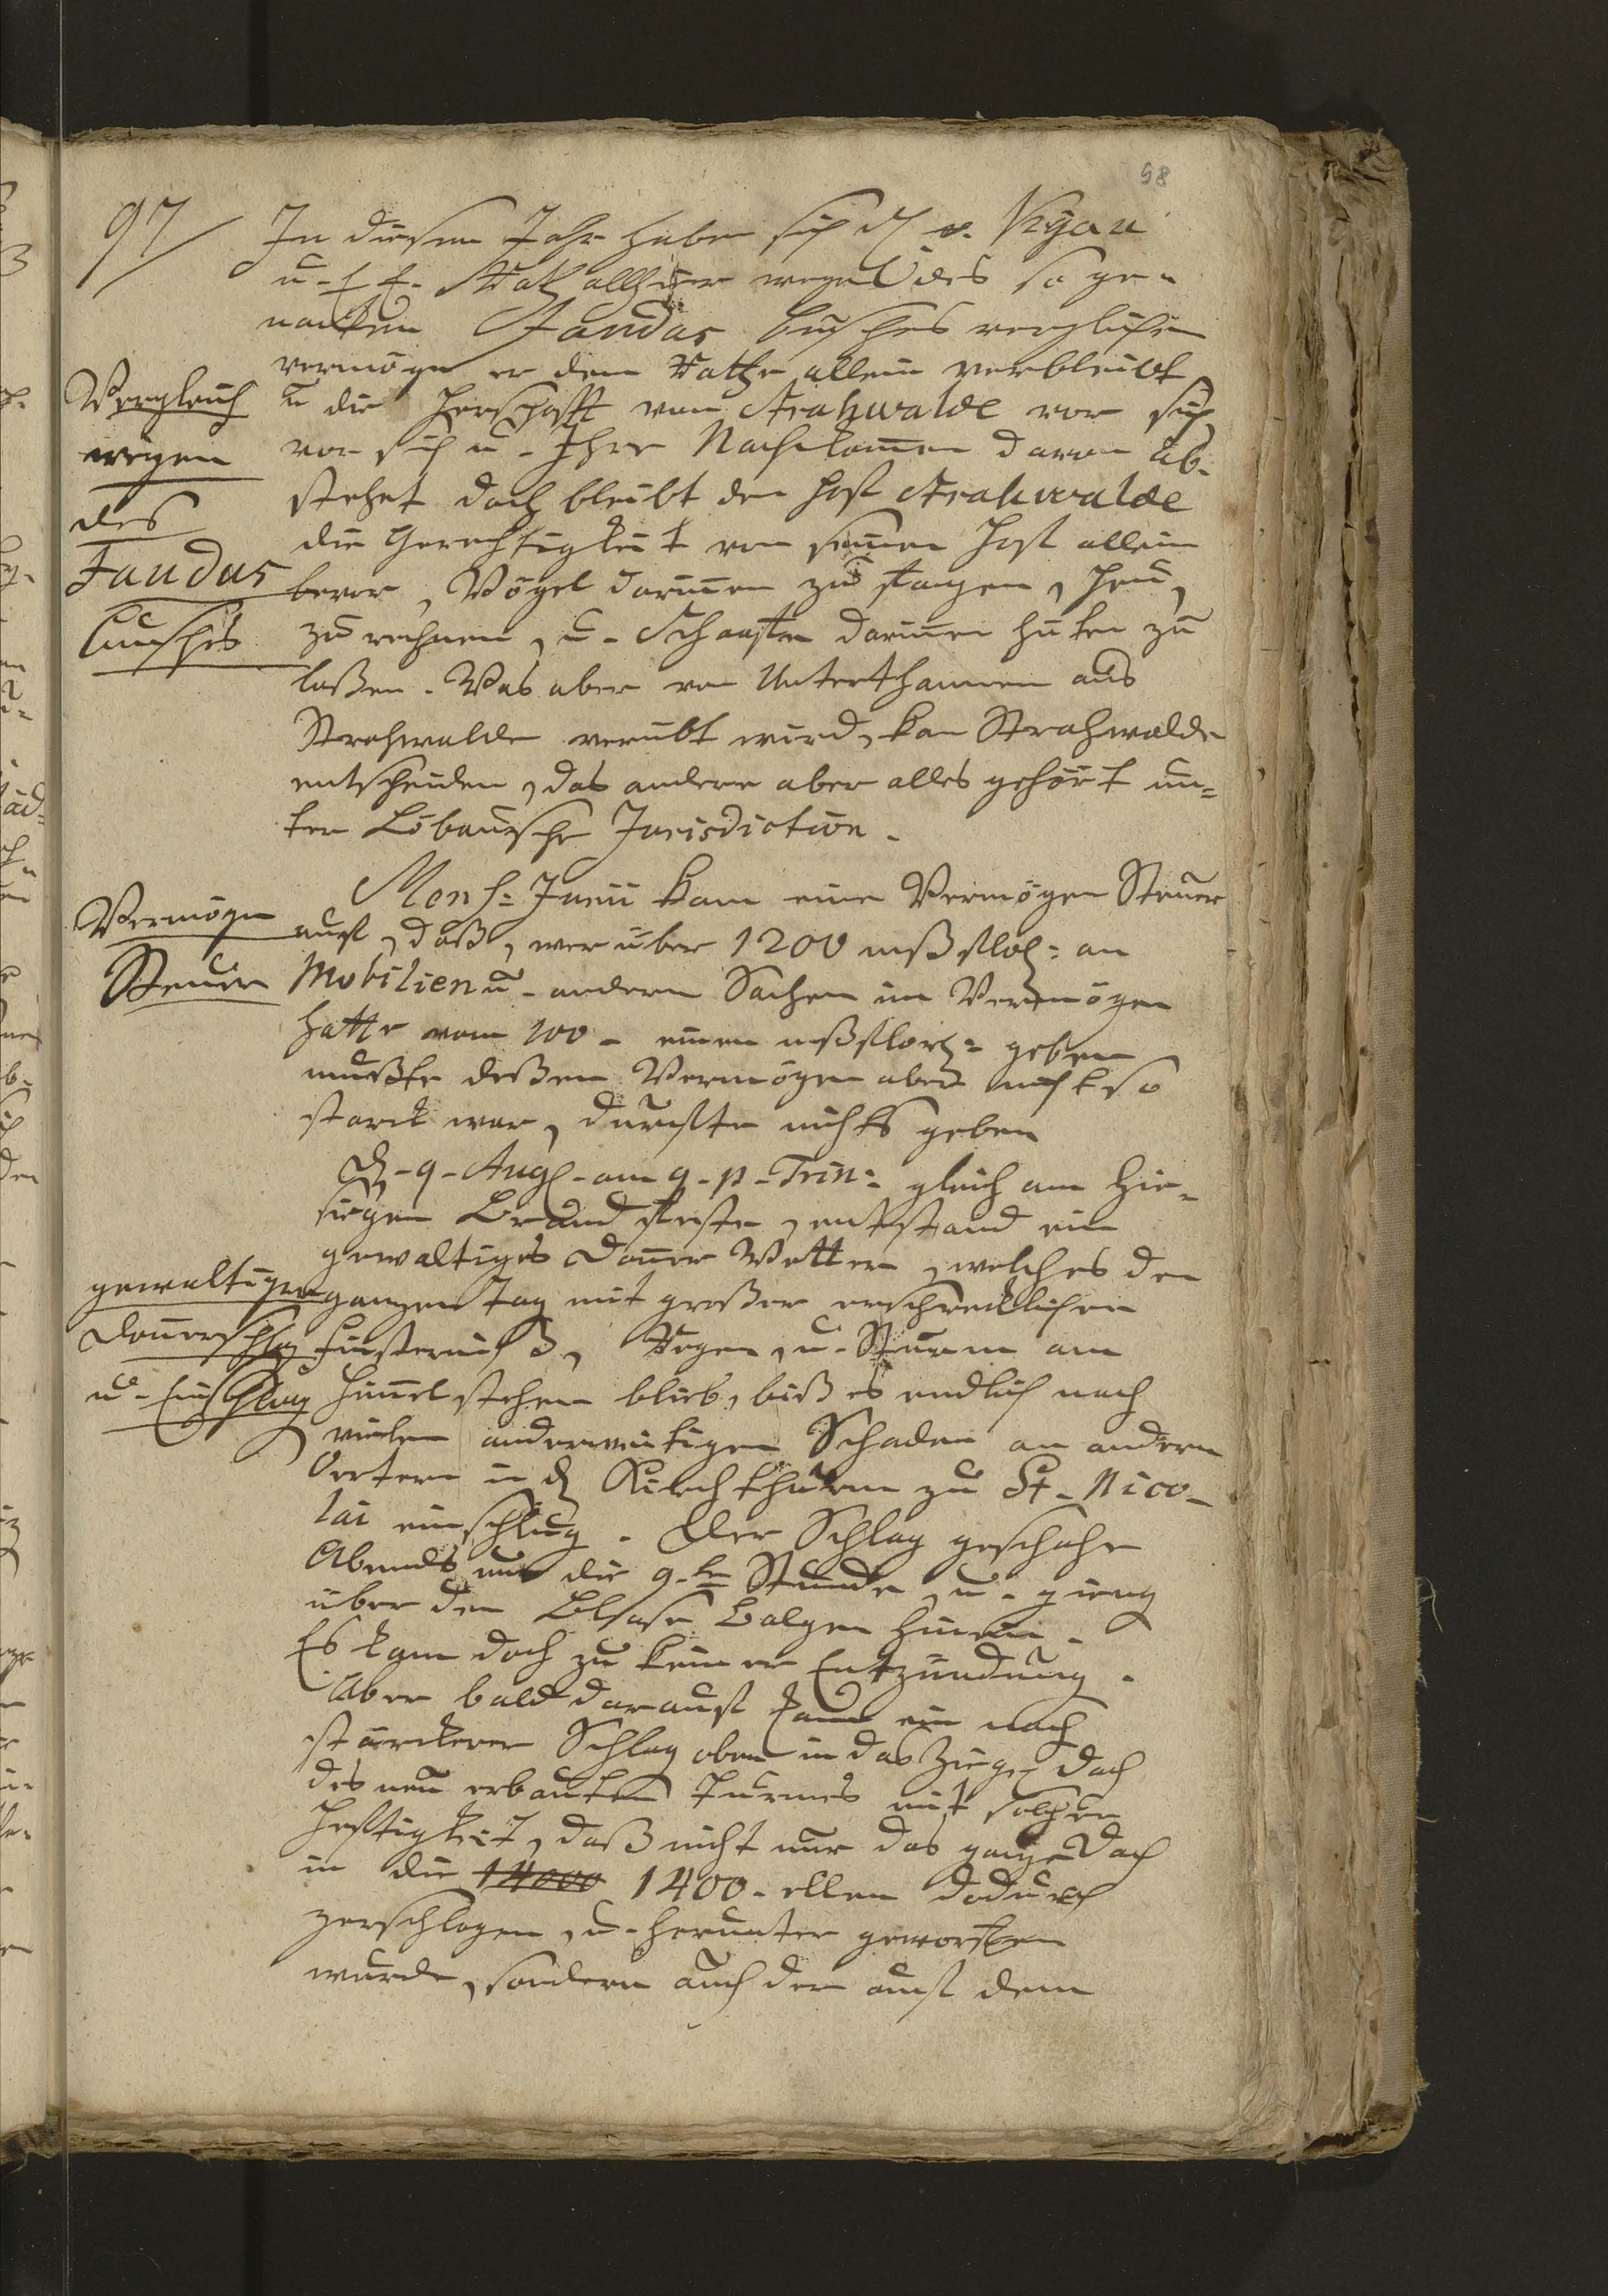 98
97/ In diesem Jahr haben sich H. v. Kyau
u. E. E. Rath allhier wegen des so ge-
nanten Jandas busches verglichen
vermöge er dem Rathe allein verbleibt
Vergleich
wegen
des
Jandas
busches
u die Herschafft von Strahwalde vor sich
vor sich u. Ihre Nachkomen davon ab-
stehet doch bleibt den Hoff Strahwalde
die Gerechtigkeit von seinen Hoff allein
bevor, Vögel darinnen zu fangen, Heu
zu rechnen, u. Schaaffe darinnen hüten zu
laßen. Was aber von Unterthannen aus
Strahwalde verübt wird, kan Strahwalde
entscheiden, das andere aber alles gehört un=
ter Löbauische Jurisdiction.
Vermögen
Steuer
Mens: Junii kam eine Vermögen Steuer
auff, daß, wer über 1200 mßflor: an
Mobilien u. andern Sachen im Vermögen
hatte vom 100 - einen mßflor: geben
mußte deßen Vermögen aber nicht so
starck war, durffte nichts geben
D. 9. Aug. am 9. p. Trin: gleich am hie-
siegen Brand feste, entstand ein
gewaltiges Donner Wetter, welches den
gewaltiger
Donnerschlag
u. Einschlag
ganzen Tag mit großer erschrecklichen
Finsterniß, Regen, u. Sturm am
Himel stehen blieb, biß es endlich nach
vielen anderweitigen Schaden an andern
Oertern in d Kirchthurm zu St. Nico-
lai einschlug. Der Schlag geschahe
Abends um die 9.te Stunde, u. gieng
über den Blase Balgen hinein.
Es kam doch zu keiner Entzündung.
Aber bald darauff kam ein noch
stärckerer Schlag oben in das Ziegel Dach
des neu erbauten Turmes mit solcher
Hefftigkeit, daß nicht nur das ganze Dach
in die 14000 1400. ellen dadurch
zerschlagen, u. herunter geworffen
wurde, sondern auch der auff dem